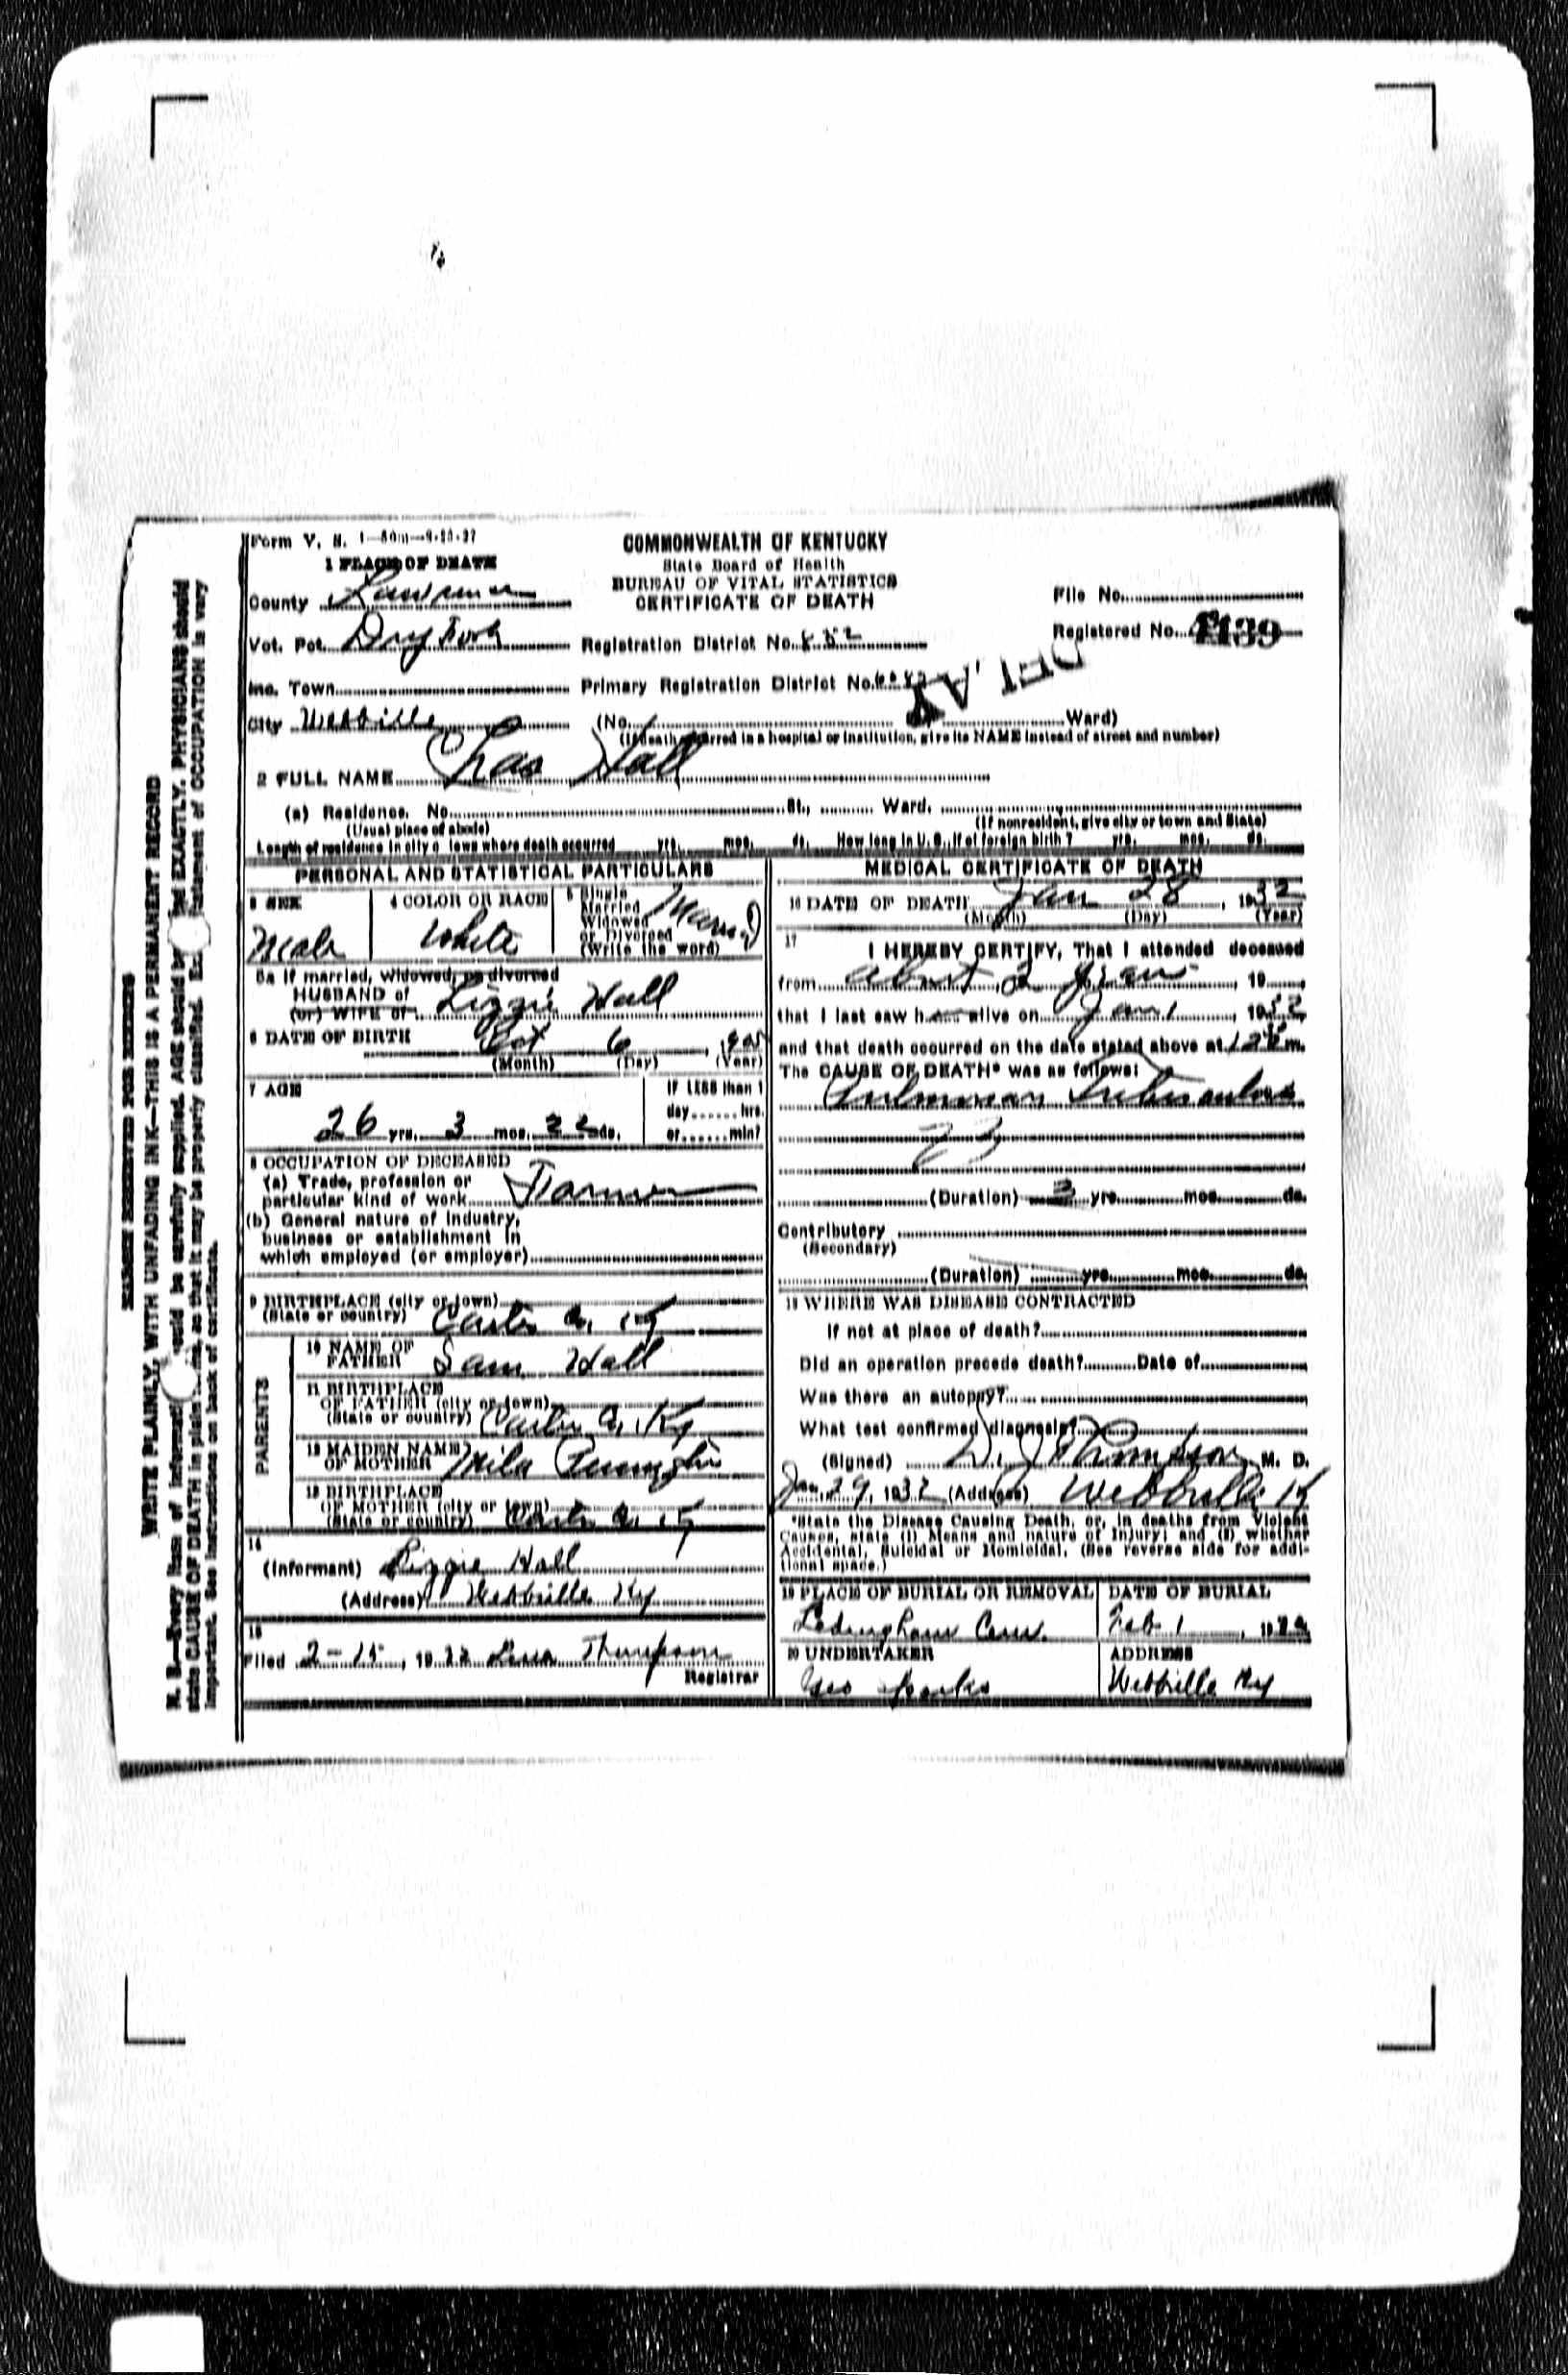 Form V. S. 1—50m—9-13-27
COMMONWEALTH OF KENTUCKY
State Board of Health
BUREAU OF VITAL STATISTICS
CERTIFICATE OF DEATH
1 PLACE OF DEATH
County Lawrence
Vot. Pct. Dry Fork
Inc. Town
City Webbville
Registration District No.
Primary Registration District No.
File No.
Registered No. 1139
DELAY
(No. Ward)
(If death occurred in a hospital or institution, give its NAME instead of street and number)
2 FULL NAME Chas Hall
(a) Residence. No. St., Ward.
(Usual place of abode) (If nonresident, give city or town and State)
Length of residence in city or town where death occurred yrs. mos. ds. How long in U. S., if of foreign birth? yrs. mos. ds.
PERSONAL AND STATISTICAL PARTICULARS
3 SEX
Male
4 COLOR OR RACE
White
5 Single
Married
Widowed
or Divorced
(Write the word)
Married
5a If married, widowed, or divorced
HUSBAND of
(or) WIFE of Lizzie Hall
6 DATE OF BIRTH Oct 6
(Month) (Day) (Year)
7 AGE
26 yrs. 3 mos. 22 ds.
IF LESS than 1
day hrs.
or min?
8 OCCUPATION OF DECEASED
(a) Trade, profession or
particular kind of work Farmer
(b) General nature of industry,
business or establishment in
which employed (or employer)
9 BIRTHPLACE (city or town)
(State or country) Carter Co. Ky
PARENTS
10 NAME OF
FATHER Sam Hall
11 BIRTHPLACE
OF FATHER (city or town)
(State or country) Carter Co. Ky
12 MAIDEN NAME
OF MOTHER Mila
13 BIRTHPLACE
OF MOTHER (city or town)
(State or country) Carter Co. Ky
14
(Informant) Lizzie Hall
(Address) Webbville Ky
15
Filed 2-15, 1932 Lena Thompson
Registrar
MEDICAL CERTIFICATE OF DEATH
16 DATE OF DEATH Jan 28, 1932
(Month) (Day) (Year)
17
I HEREBY CERTIFY, That I attended deceased
from about 2 years, 19
that I last saw h alive on Jan 1, 1932
and that death occurred on the date stated above at m.
The CAUSE OF DEATH* was as follows:
Pulmonary Tuberculosis
23
(Duration) 2 yrs. mos. ds.
Contributory
(Secondary)
(Duration) yrs. mos. ds.
18 WHERE WAS DISEASE CONTRACTED
If not at place of death?
Did an operation precede death? Date of
Was there an autopsy?
What test confirmed diagnosis?
(Signed) D. J Thompson, M. D.
Jan. 29, 1932 (Address) Webbville Ky
*State the Disease Causing Death, or, in deaths from Violent
Causes, state (1) Means and nature of Injury; and (2) whether
Accidental, Suicidal or Homicidal. (See reverse side for addi-
tional space.)
19 PLACE OF BURIAL OR REMOVAL
Ledingham Cem.
DATE OF BURIAL
Feb 1, 1932
20 UNDERTAKER
Geo Sparks
ADDRESS
Webbville Ky
MARGIN RESERVED FOR BINDING
WRITE PLAINLY, WITH UNFADING INK—THIS IS A PERMANENT RECORD
N. B.—Every item of information should be carefully supplied. AGE should be stated EXACTLY. PHYSICIANS should
state CAUSE OF DEATH in plain terms, so that it may be properly classified. Exact statement of OCCUPATION is very
important. See instructions on back of certificate.